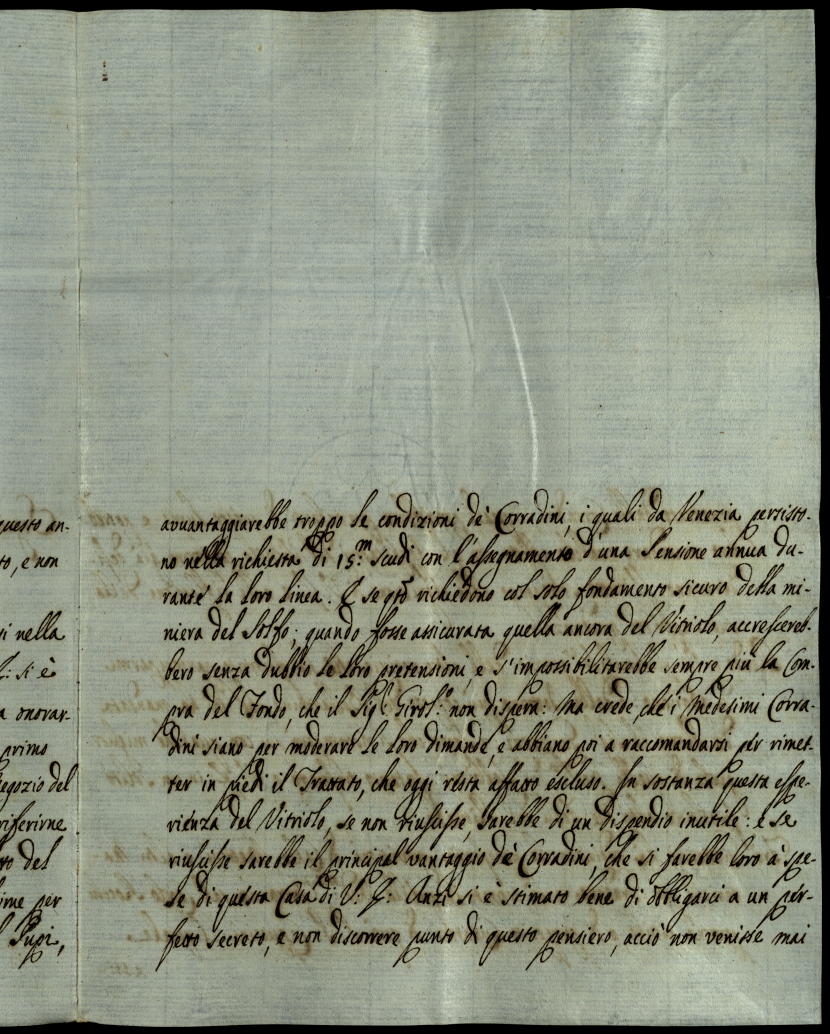 questo an-
to, e non
si nella
si è
a onorar-
primo
egozio del
riferirne
to del
irne per
Pupi,
avvantaggiarebbe troppo le condizioni de' Corradini, i quali da Venezia persisto-
no nella richiesta di 15.m scudi con l'assegnamento d'una Pensione annua du-
rante la loro linea. E se qto richiedono col solo fondamento sicuro della mi-
niera del Solfo; quando fosse assicurata quella ancora del Vitriolo, accrescereb-
bero senza dubbio le loro pretensioni, e s'impossibilitarebbe sempre più la Com-
pra del Fondo, che il Sig.r Girol.o non dispera: Ma crede che i Medesimi Corra-
dini siano per moderare le loro dimande, e abbiano poi a raccomandarsi per rimet-
ter in piedi il Trattato, che oggi resta affatto escluso. In sostanza questa espe-
rienza del Vitriolo, se non riuscisse, sarebbe di un dispendio inutile: e se
riuscisse sarebbe il principal vantaggio de' Corradini, che si farebbe loro à spe-
se di questa Casa di V: Anzi si è stimato bene di obbligarci a un per-
fetto secreto, e non discorrere punto di questo pensiero, acciò non venisse mai